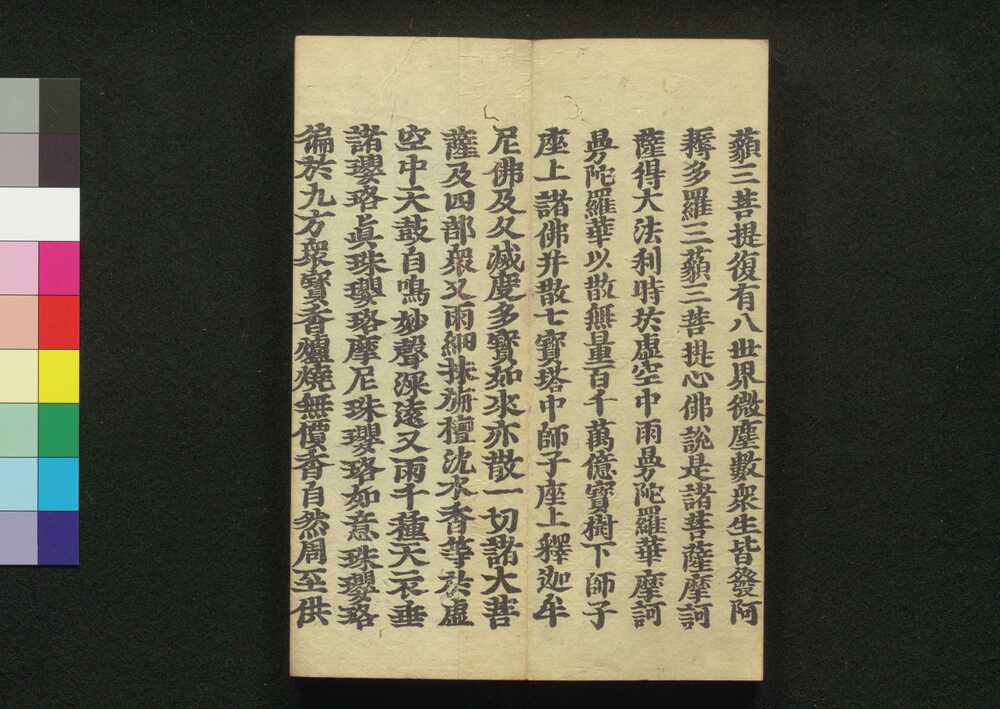 藐三菩提復有八世界微塵數衆生皆發阿
耨多羅三藐三菩提心佛說是諸菩薩摩訶
薩得大法利時於虛空中雨曼陀羅華摩訶
曼陀羅華以散無量百千萬億寶樹下師子
座上諸佛并散七寶塔中師子座上釋迦牟
尼佛及久滅度多寶如來亦散一切諸大菩
薩及四部衆又雨細抹旃檀沈水香等於虛
空中天鼓自鳴妙聲深遠又雨千種天衣垂
諸瓔珞眞珠瓔珞摩尼珠瓔珞如意珠瓔珞
徧於九方衆寶香爐燒無價香自然周至供